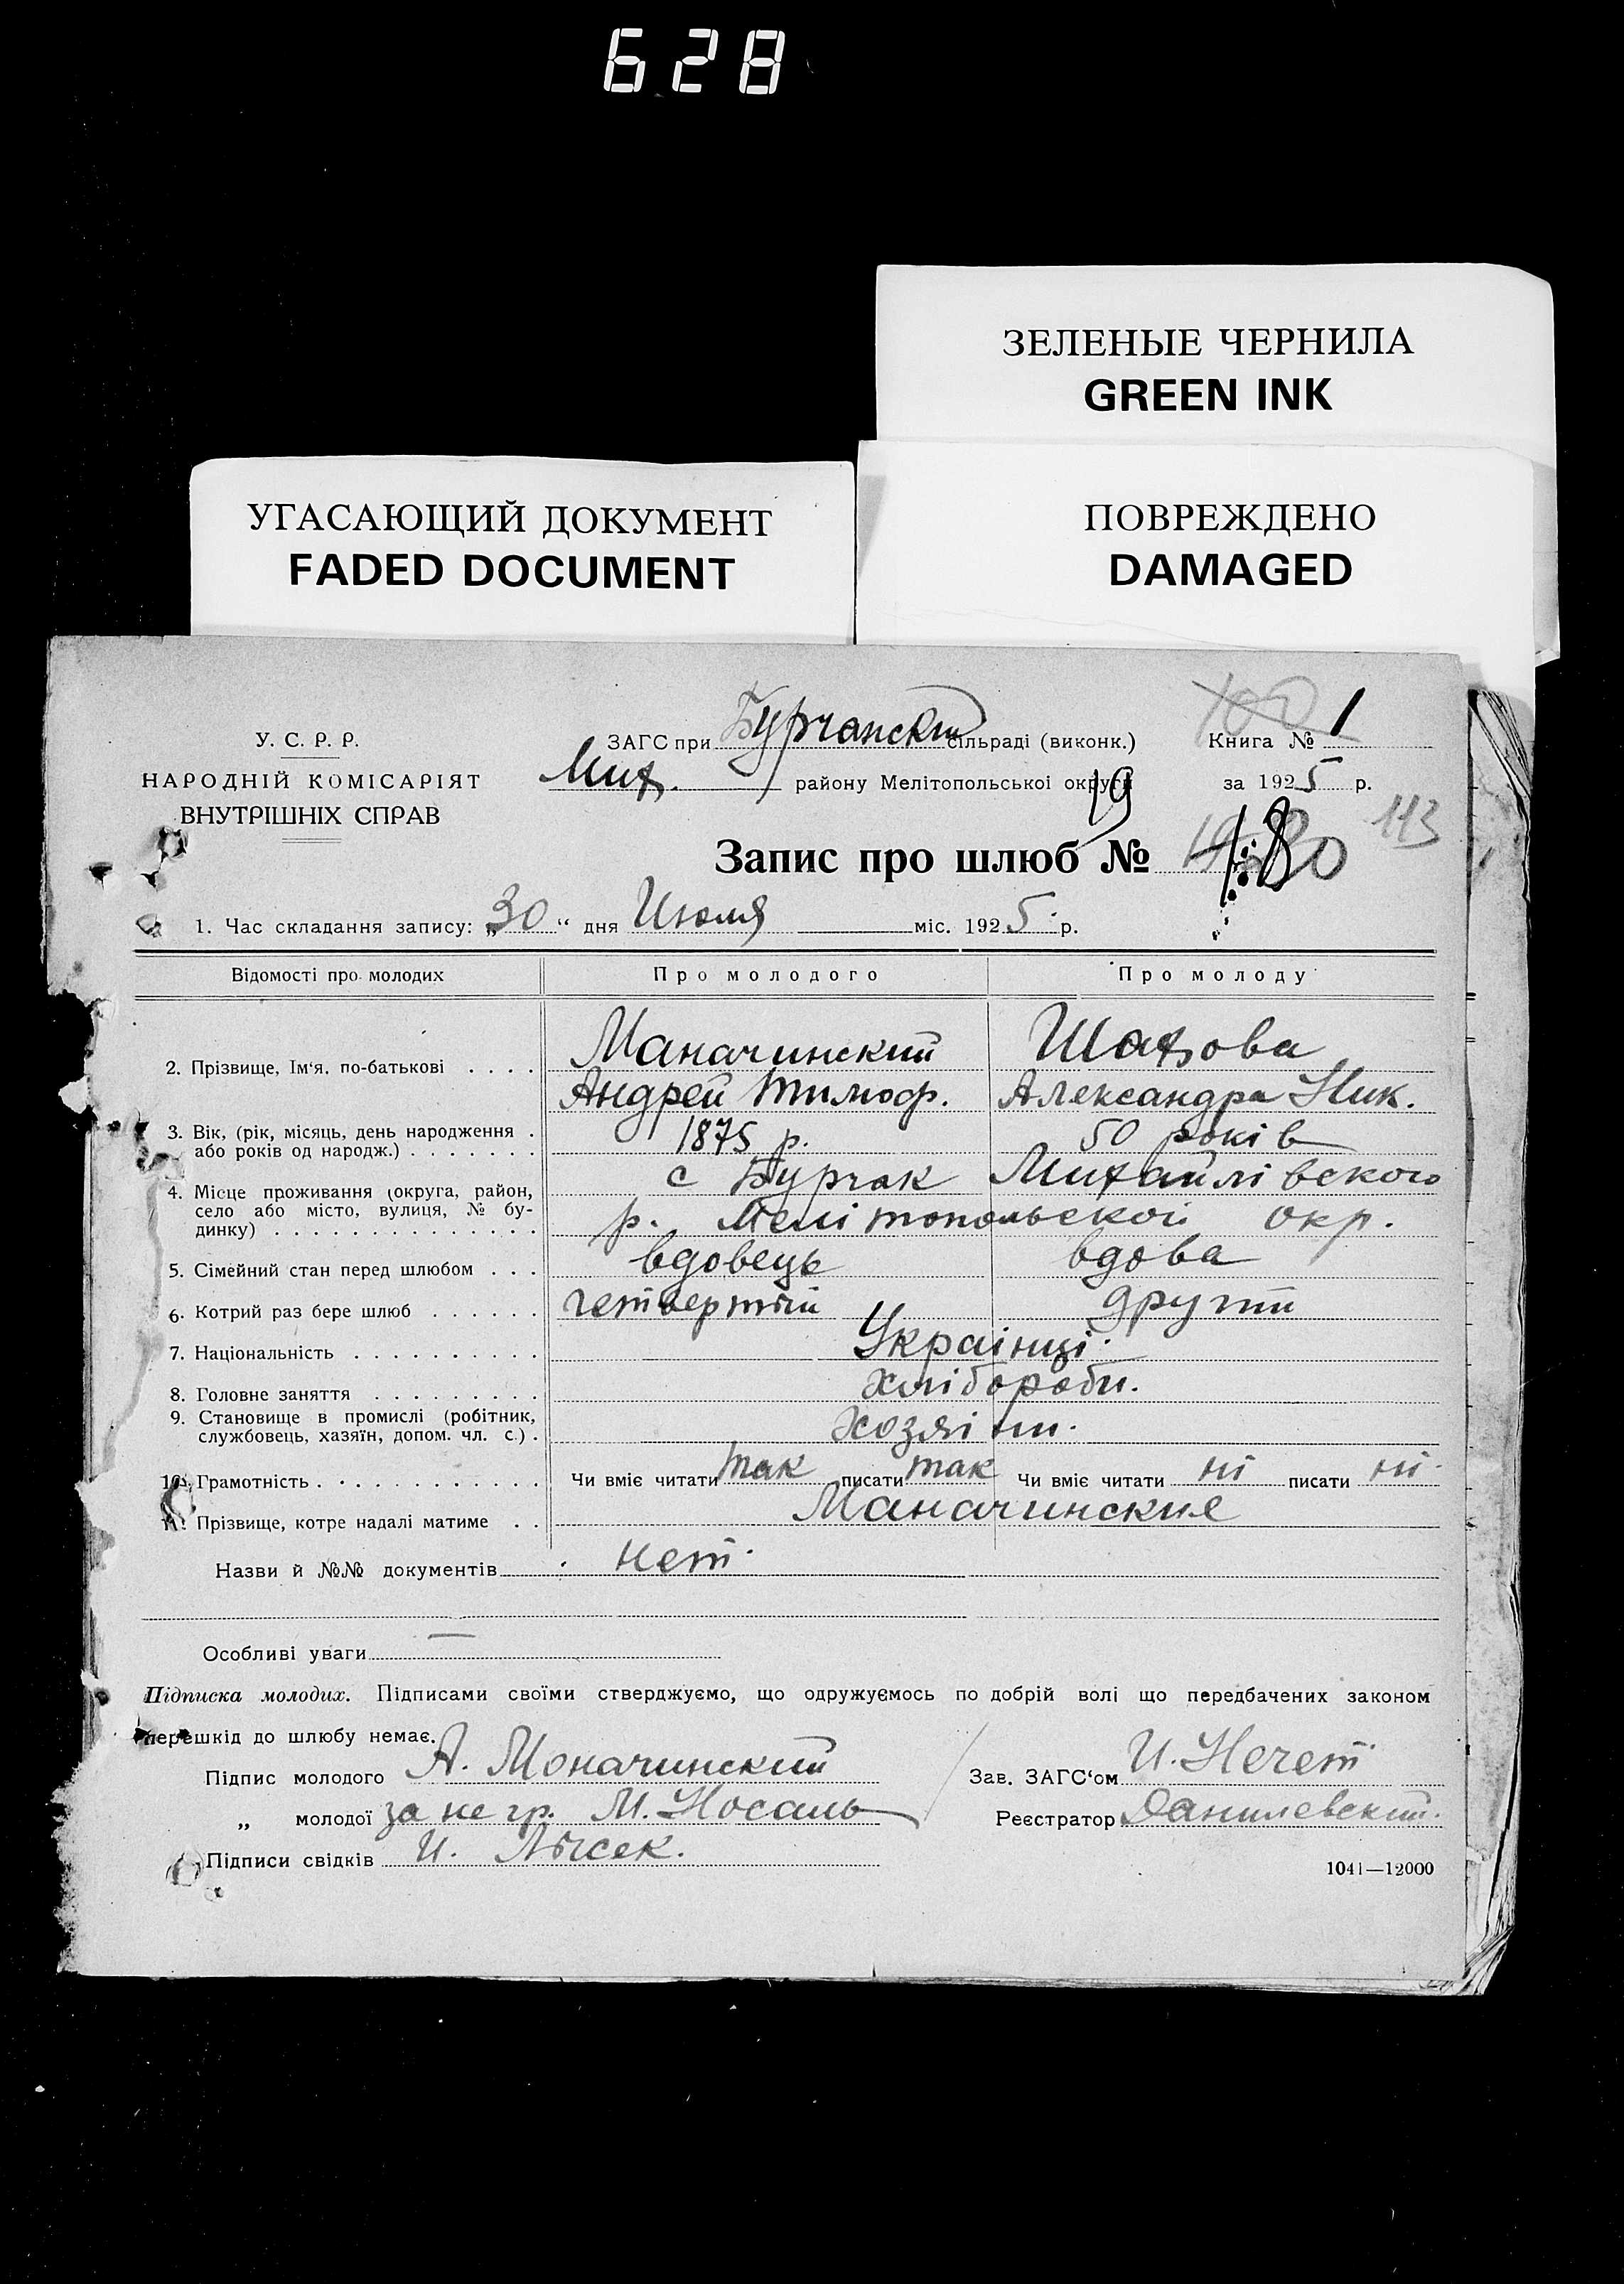 628
ЗЕЛЕНЫЕ ЧЕРНИЛА
GREEN INK
УГАСАЮЩИЙ ДОКУМЕНТ
FADED DOCUMENT
ПОВРЕЖДЕНО
DAMAGED
У. С. Р. Р.
НАРОДНІЙ КОМІСАРІЯТ
ВНУТРІШНІХ СПРАВ
ЗАГС при Бурчанский сільраді (виконк.)
Мих. району Мелітопольської округи
Книга № 1
за 1925 р.
113
19
Запис про шлюб №
1. Час складання запису: „30“ дня Июля міс. 1925 р.
Відомості про молодих Про молодого Про молоду
2. Прізвище, Ім'я, по-батькові Маначинский Шахова
Андрей Тимоф. Александра Ник.
3. Вік, (рік, місяць, день народження або років од народж.) 1875 р. 50 років
4. Місце проживання (округа, район, село або місто, вулиця, № будинку) с Бурчак Михайлівского
р. Мелітопольской окр.
5. Сімейний стан перед шлюбом вдовець вдова
6. Котрий раз бере шлюб четвертый другий
7. Національність Українці
8. Головне заняття хлібороби.
9. Становище в промислі (робітник, службовець, хазяїн, допом. чл. с.) хозяіни.
10. Грамотність Чи вміє читати так писати так Чи вміє читати ні писати ні
11. Прізвище, котре надалі матиме Маначинские
Назви й №№ документів нет.
Особливі уваги —
Підписка молодих. Підписами своїми стверджуємо, що одружуємось по добрій волі що передбачених законом
перешкід до шлюбу немає.
Підпис молодого А. Моначинский
„ молодої за не гр. М. Носаль
Підписи свідків И. Лысек.
Зав. ЗАГС'ом И. Нечет
Реєстратор Данилевский.
1041—12000